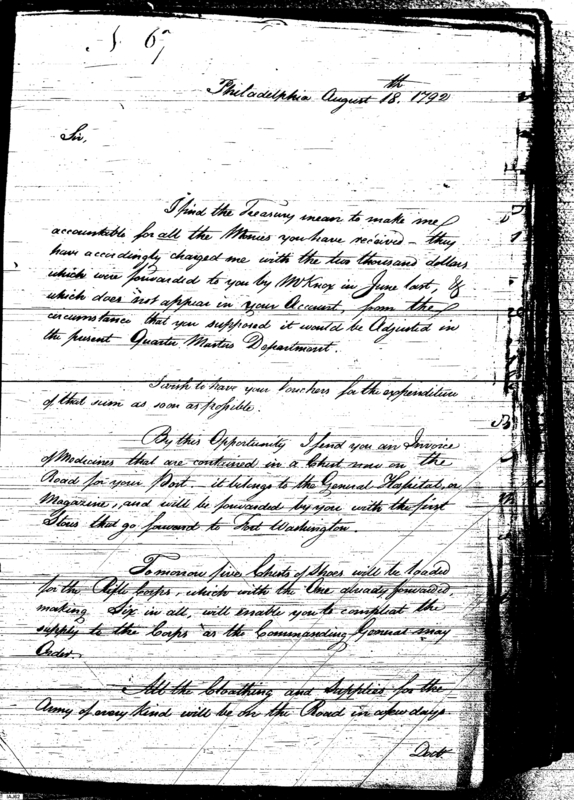 67
Philadelphia August 18th. 1792
Sir,
I find the Treasury mean to make me
accountable for all the Monies you have received – they
have accordingly charged me with the two thousand dollars
which were forwarded to you by Mr Knox in June last, &
which does not appear in your Account, from the
circumstance that you supposed it would be Adjusted in
the present Quarter Masters Department.
I wish to have your Vouchers for the expenditure
of that sum as soon as possible.
By this Opportunity I send you an Invoice
of Medicines that are contained in a Chest now on the
Road for your Post. – it belongs to the General Hospital, or
Magazine, and will be forwarded by you with the first
Stores that go forward to Fort Washington.
Tomorrow five Chests of Shoes will be loaded
for the Rifle Corps, which with the One already forwarded,
making Six in all, will enable you to compleat the
supply to the Corps as the Commanding General may
Order.
All the Cloathing and Supplies for the
Army of every Kind will be on the Road in a few days.
Doctr.